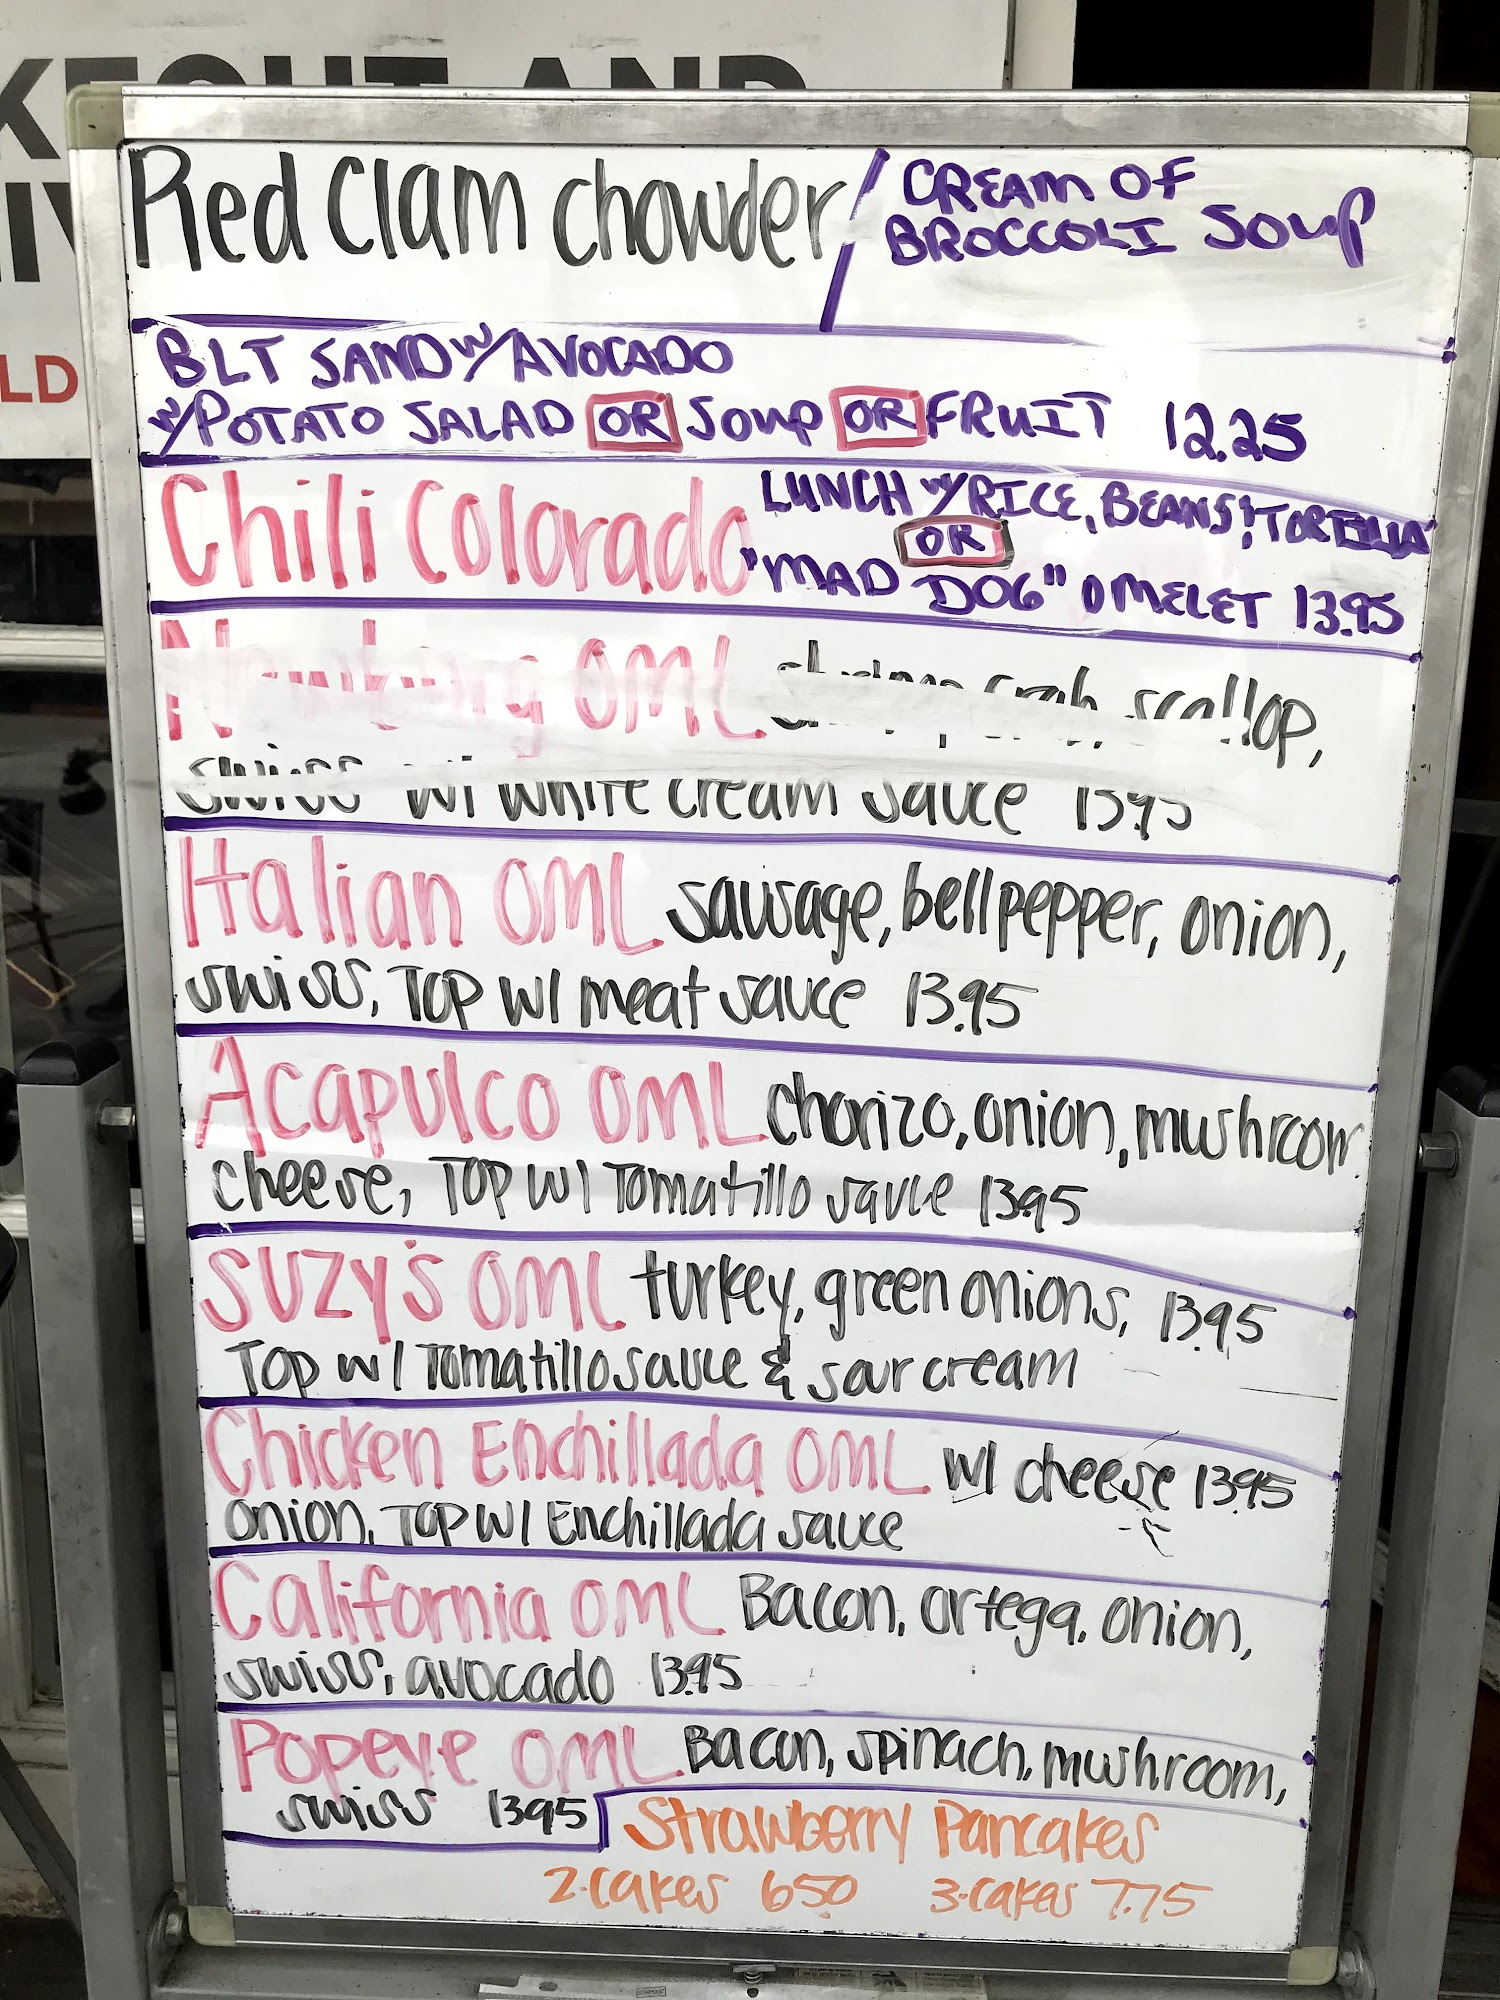 KEOUT AND
LD
Red Clam Chowder / CREAM OF
BROCCOLI SOUP
BLT SAND W/ AVOCADO
W/ POTATO SALAD OR SOUP OR FRUIT 12.25
Chili Colorado LUNCH W/ RICE, BEANS, & TORTILLA
OR
"MAD DOG" OMELET 13.95
Newburg OML shrimp, crab, scallop,
swiss w/ white cream sauce 13.95
Italian OML sausage, bellpepper, onion,
swiss, TOP w/ meat sauce 13.95
Acapulco OML chorizo, onion, mushroom
cheese, TOP w/ Tomatillo sauce 13.95
Suzy's OML turkey, green onions, 13.95
TOP w/ Tomatillo sauce & sour cream
Chicken Enchillada OML w/ cheese 13.95
onion, TOP w/ Enchillada sauce
California OML Bacon, ortega, onion,
swiss, avocado 13.95
Popeye OML Bacon, spinach, mushroom,
swiss 13.95 Strawberry Pancakes
2-cakes 6.50 3-cakes 7.75